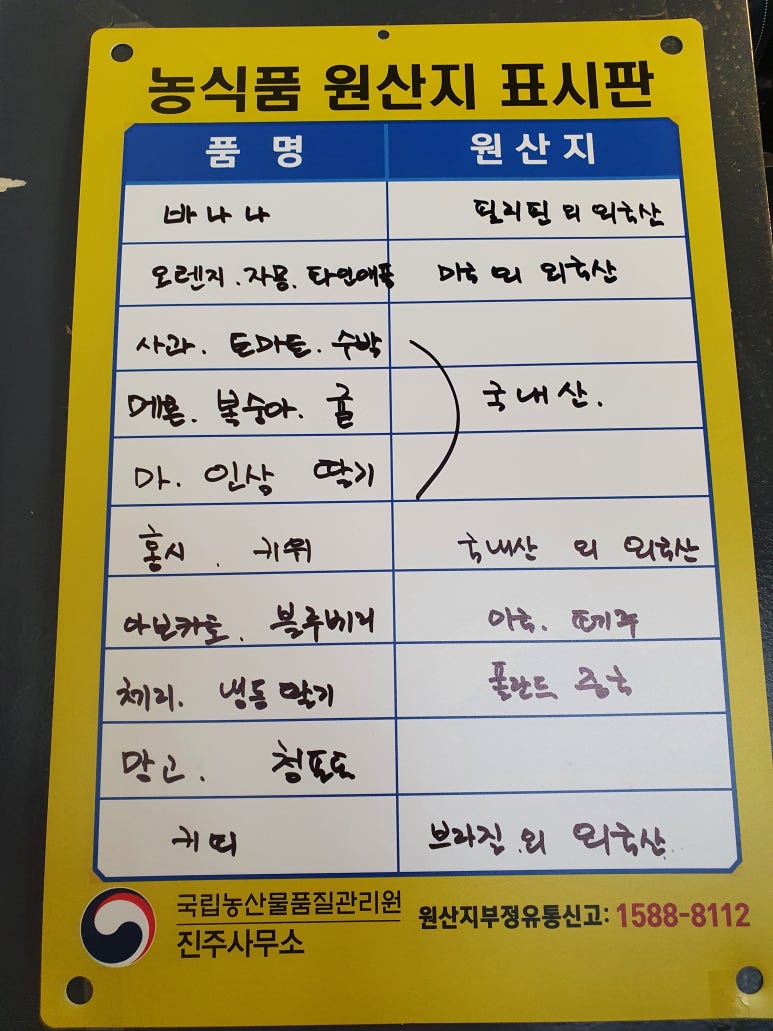 농식품 원산지 표시판
품 명 원산지
바나나 필리핀 외 외국산
오렌지. 자몽. 파인애플 미국 외 외국산
사과. 토마토. 수박
메론. 복숭아. 귤 국내산.
마. 인삼 딸기
홍시. 키위 국내산 외 외국산
아보카도. 블루베리 미국. 페루
체리. 냉동딸기 폴란드 중국
망고. 청포도
커피 브라질 외 외국산
국립농산물품질관리원
진주사무소
원산지부정유통신고: 1588-8112